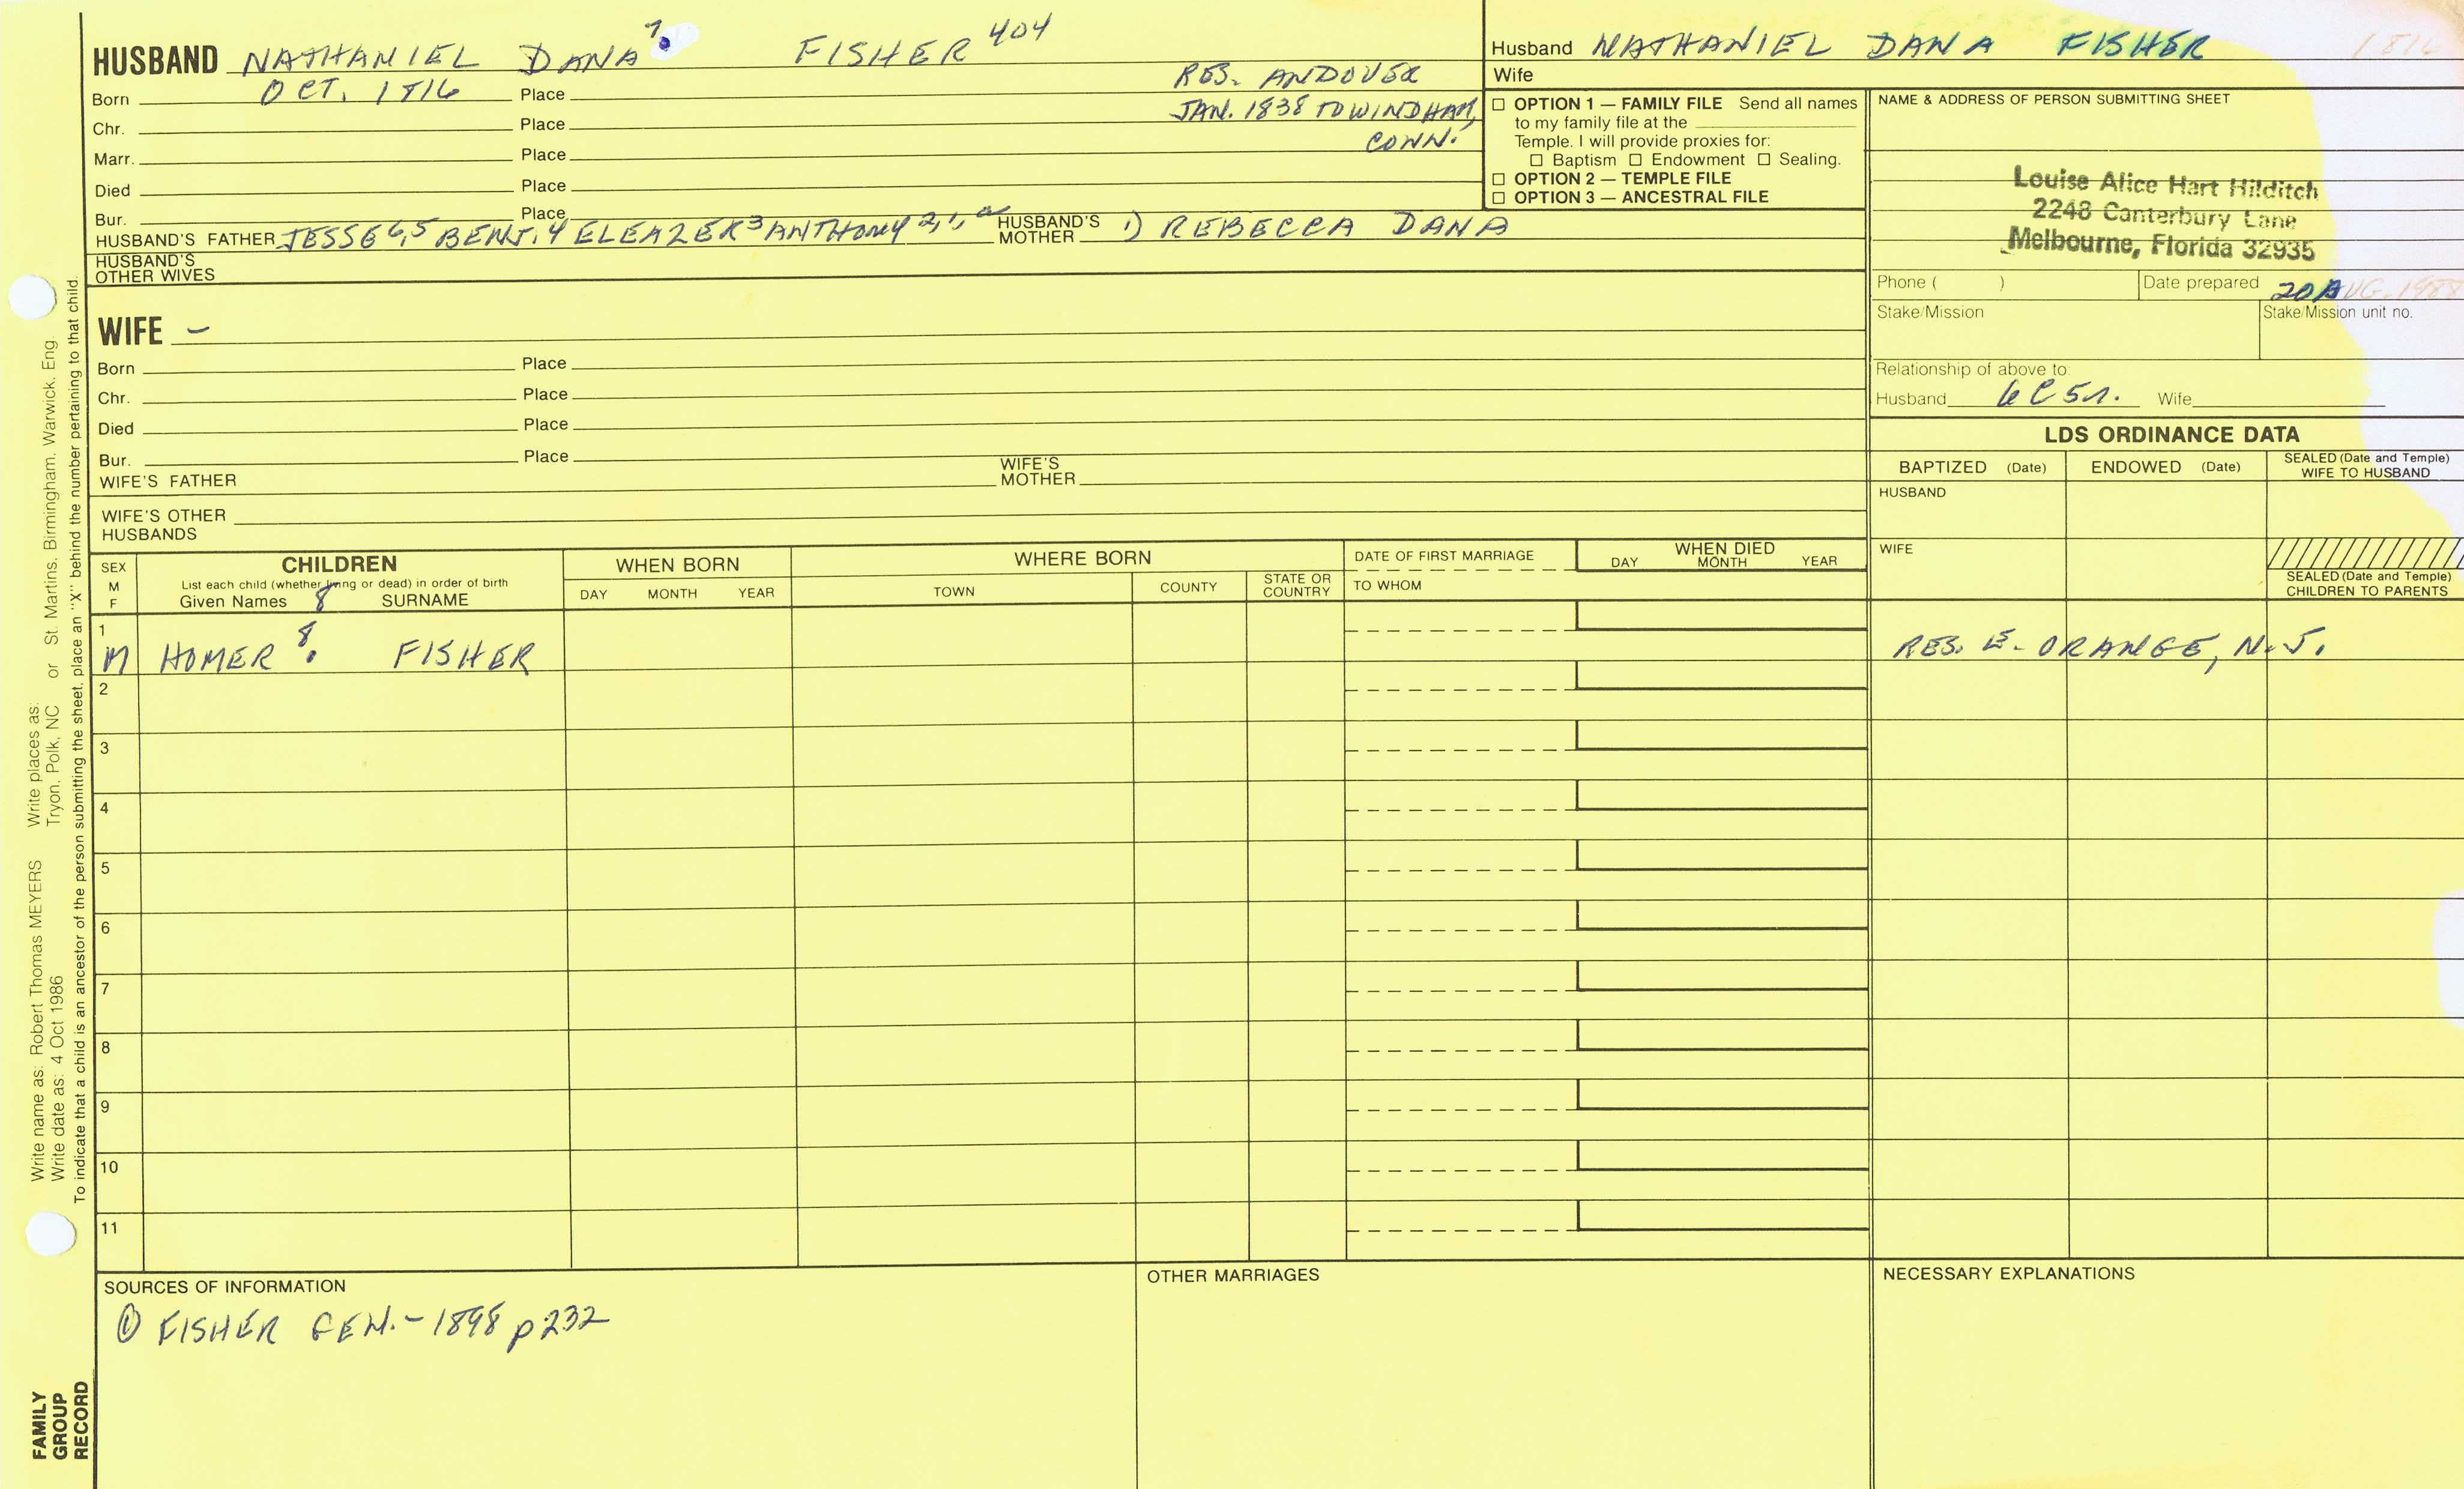 HUSBAND NATHANIEL DANA 7. FISHER 404
Born OCT. 1816 Place
RES. ANDOVER
JAN. 1838 TO WINDHAM,
CONN.
Chr. Place
Marr. Place
Died Place
Bur. Place
HUSBAND'S FATHER JESSE 6,5 BENJ. 4 ELEAZER 3 ANTHONY 2,1, HUSBAND'S MOTHER 1) REBECCA DANA
HUSBAND'S
OTHER WIVES
WIFE –
Born Place
Chr. Place
Died Place
Bur. Place
WIFE'S FATHER WIFE'S MOTHER
WIFE'S OTHER
HUSBANDS
Husband NATHANIEL DANA FISHER 1816
Wife
□ OPTION 1 — FAMILY FILE Send all names
to my family file at the
Temple. I will provide proxies for:
□ Baptism □ Endowment □ Sealing.
□ OPTION 2 — TEMPLE FILE
□ OPTION 3 — ANCESTRAL FILE
NAME & ADDRESS OF PERSON SUBMITTING SHEET
Louise Alice Hart Hilditch
2248 Canterbury Lane
Melbourne, Florida 32935
Phone ( ) Date prepared 20 AUG. 1988
Stake/Mission Stake/Mission unit no.
Relationship of above to:
Husband 6C5r. Wife
LDS ORDINANCE DATA
BAPTIZED (Date) ENDOWED (Date) SEALED (Date and Temple)
WIFE TO HUSBAND
HUSBAND
WIFE
SEALED (Date and Temple)
CHILDREN TO PARENTS
SEX
M
F
CHILDREN
List each child (whether living or dead) in order of birth
Given Names 8 SURNAME
WHEN BORN
DAY MONTH YEAR
WHERE BORN
TOWN COUNTY STATE OR COUNTRY
DATE OF FIRST MARRIAGE
TO WHOM
WHEN DIED
DAY MONTH YEAR
1
M HOMER 8. FISHER RES. E. ORANGE, N.J.
2
3
4
5
6
7
8
9
10
11
SOURCES OF INFORMATION
① FISHER GEN. – 1898 p 232
OTHER MARRIAGES
NECESSARY EXPLANATIONS
Write name as: Robert Thomas MEYERS Write places as:
Write date as: 4 Oct 1986 Tryon, Polk, NC or St. Martins, Birmingham, Warwick, Eng.
To indicate that a child is an ancestor of the person submitting the sheet, place an "X" behind the number pertaining to that child.
FAMILY
GROUP
RECORD